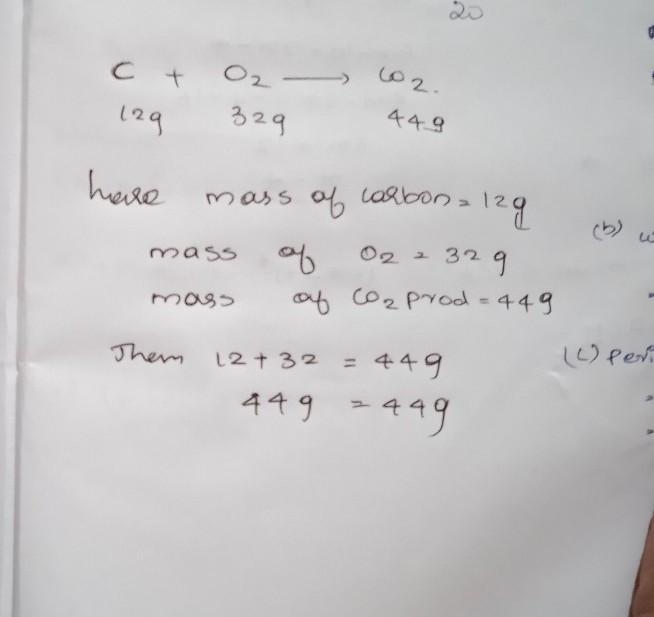 20
C + O2 → CO2.
12g 32g 44g
here mass of carbon = 12g
mass of O2 = 32g
(b)
mass of CO2 prod = 44g
Them 12 + 32 = 44g
(c) peri
44g = 44g